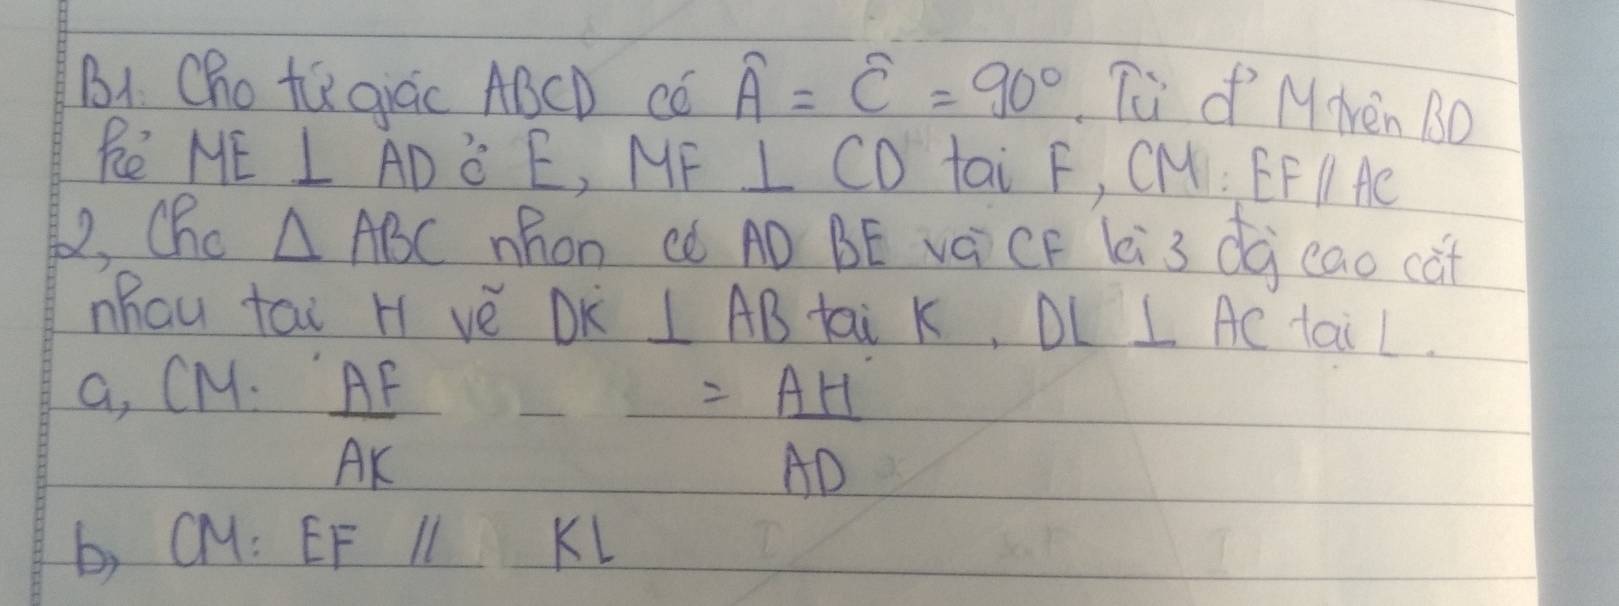 B1. Cho tứ giác ABCD có Â = Ĉ = 90°. Từ đ' M trên BD
kẻ ME ⊥ AD ở E, MF ⊥ CD tại F, CM: EF // AC
2, Cho Δ ABC nhọn có AD BE và CF là 3 đg cao cắt
nhau tại H vẽ DK ⊥ AB tại K, DL ⊥ AC tại L.
a, CM: AF/AK = AH/AD
b, CM: EF // KL